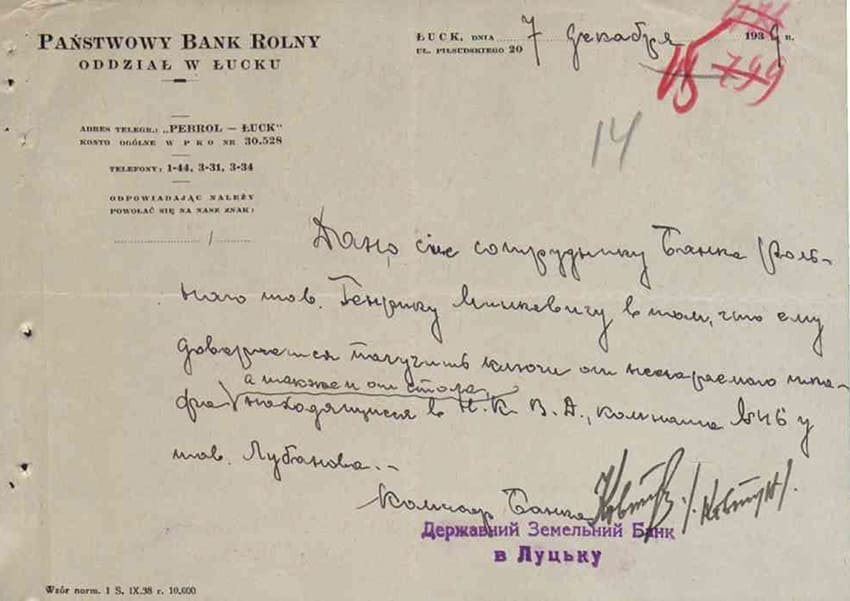 PAŃSTWOWY BANK ROLNY
ODDZIAŁ W ŁUCKU
ADRES TELEGR.: „PEBROL – ŁUCK”
KONTO OGÓLNE W P K O NR 30.528
TELEFONY: 1-44, 3-31, 3-34
ODPOWIADAJĄC NALEŻY
POWOŁAĆ SIĘ NA NASZ ZNAK:
/
ŁUCK, DNIA 7 декабря 1939 R.
UL. PIŁSUDSKIEGO 20
799
14
Дано, сие сотруднику Банка Роль-
ного тов. Генрику в том, что ему
доверяется получить ключи от несгораемого шка-
а также и от стола,
фа находящиеся в Н.К.В.Д., комната №46 у
тов. Лубанова.–
Комисар Банка
Державний Земельний Банк
в Луцьку
Wzór norm. 1 S. IX.38 r. 10.000